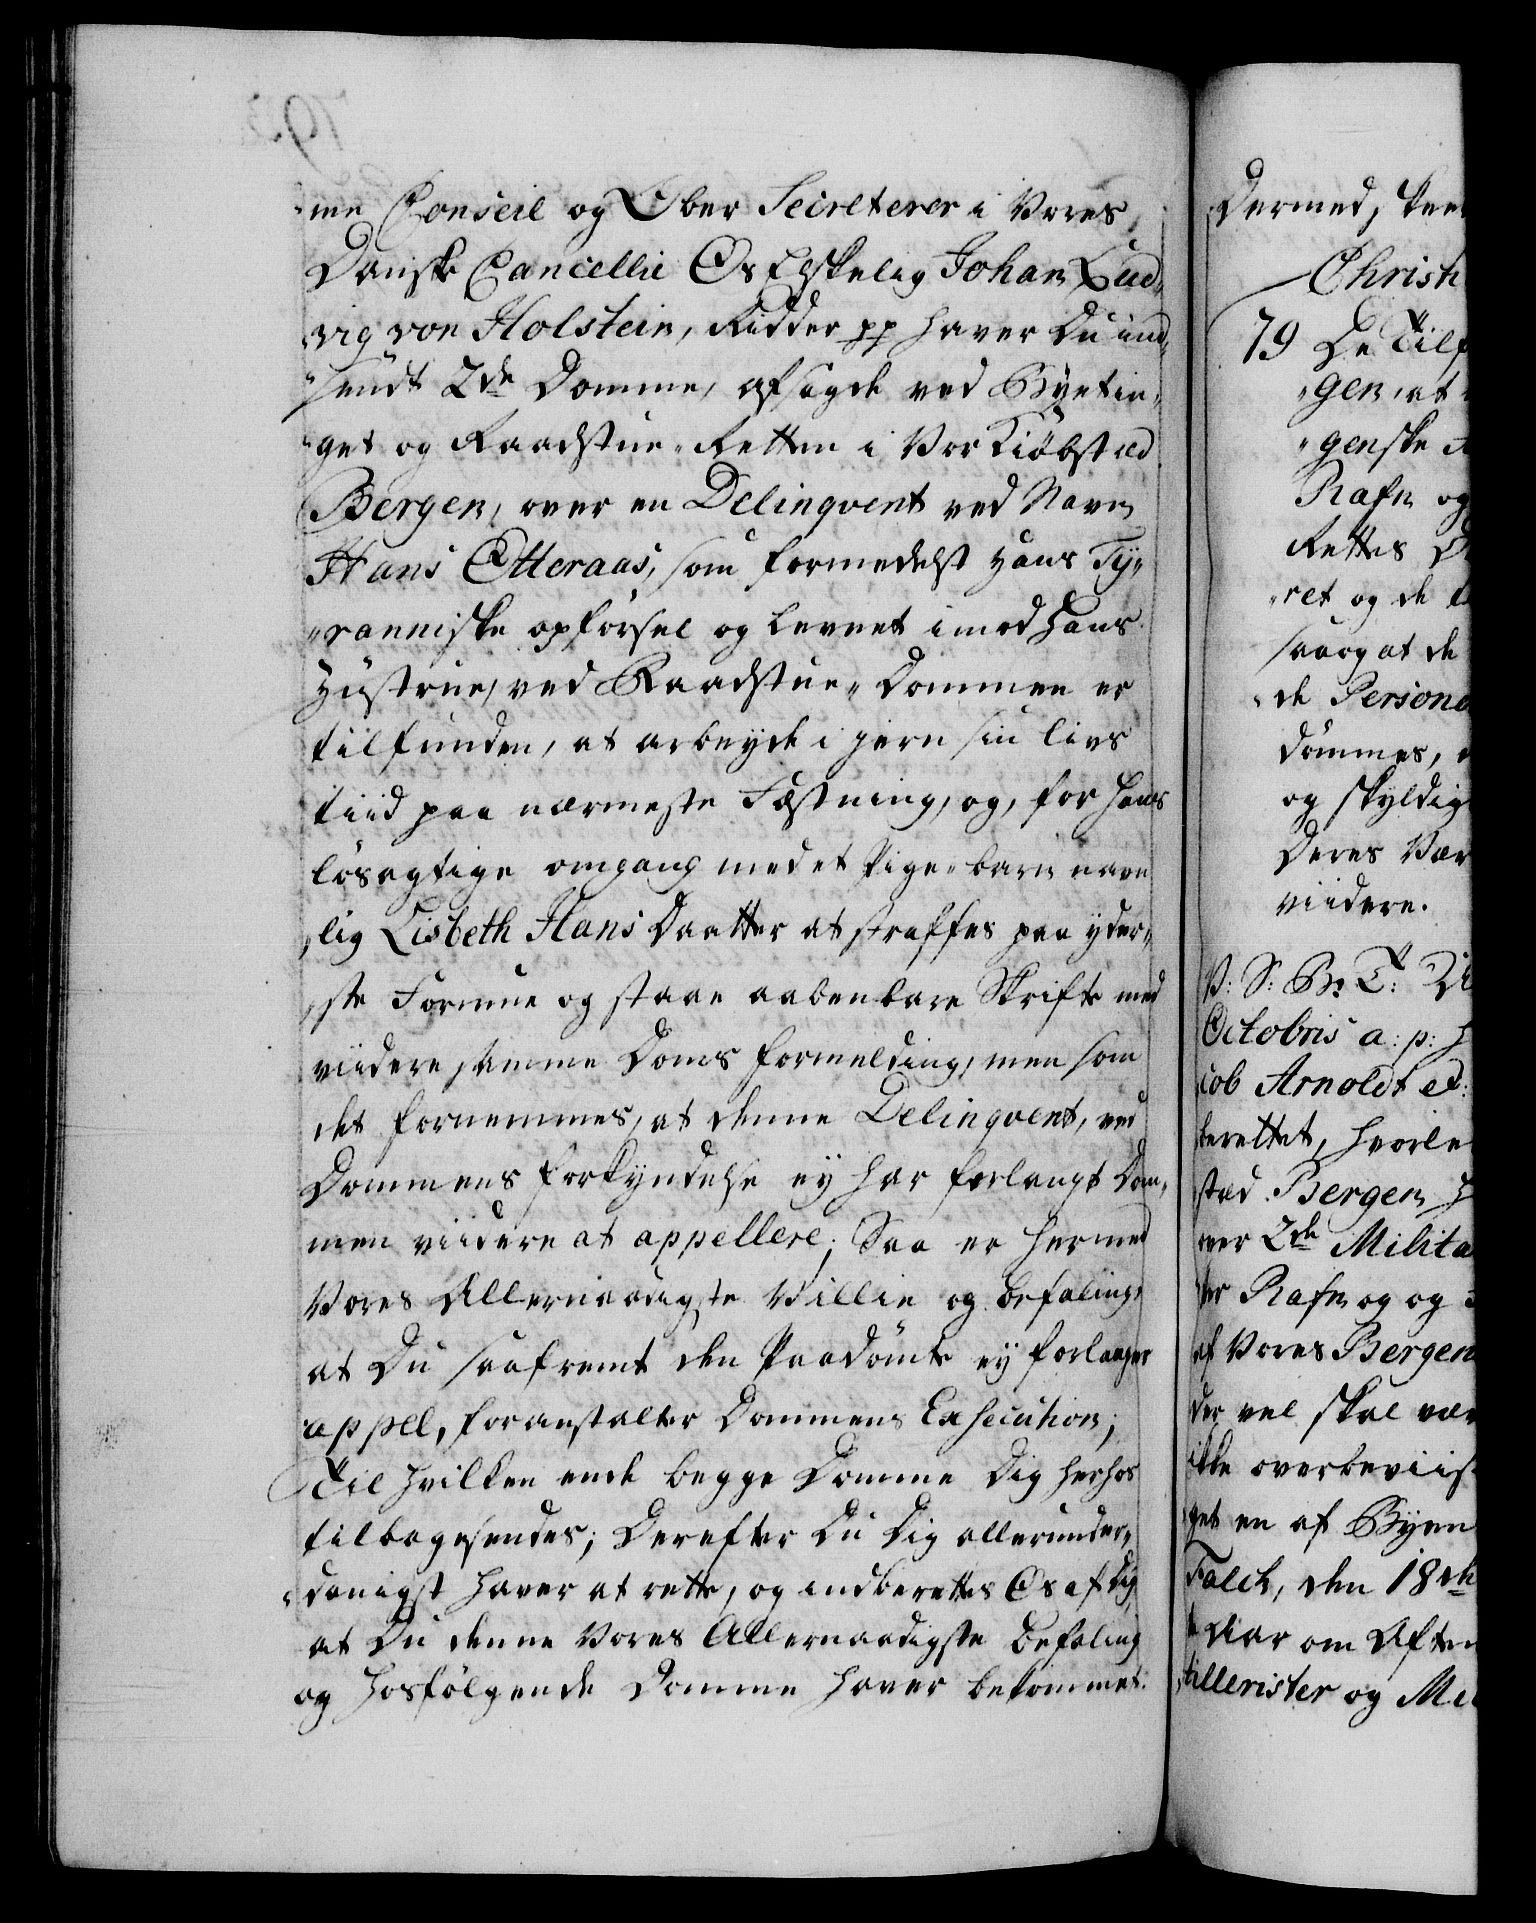 me Conseil og Ober Secreterer i Vores
Danske Cancellie Os Elskelig Johan Lud„
„vig von Holstein, Ridder pp haver Du ind„
„sendt 2de Domme, afsagde ved Byetin„
„get og Raadstue-Retten i Vor Kiöbstæd
Bergen, over en Delinqvent ved Navn
Hans Otteraas, som formedelst hans Ty„
„ranniske opförsel og levnet imod hans
Hustrue, ved Raadstue-Dommen er
tilfunden, at arbeyde i jern sin livs
tiid paa nærmeste Fæstning, og, for hans
lösagtige omgang med et Pige-barn navn
„lig Lisbeth Hans Daatter at straffes paa yder„
„ste Formue og staae aabenbare Skrifte med
viidere samme Doms formelding, men som
det fornemmes, at denne Delinqvent, ved
Dommens forkyndelse ey har forlangt Dom„
men viidere at appellere; Saa er hermed
Vores Allernaadigste Villie og befaling,
at Du saafremt den Paadömte ey forlanger
appel, foranstalter Dommens Execution;
Til hvilken ende begge Domme Dig herhos
tilbagesendes; Derefter Du Dig allerunder„
„danigst haver at rette, og indberettes Os af Dig,
at Du denne Vores Allernaadigste befaling
og hosfölgende Domme haver bekommet.
Dermed, skee
Christ
79 De Tilf
„gen, at
„genske
Rafn og
Rettes
„ret og de
saa og at de
de Persone
dömmes,
og skyldig
Deres Vær
viidere.
V: S: B: T:
Octobris a: p:
cob Arnoldt et:
berettet, hvorle
stæd Bergen
over 2de Milita
Rafn og og
af Vores Bergen
der vel skal vær
ikke overbeviist
get en af Byen
Falck, den 18de
Aar om Aften
tillerister og